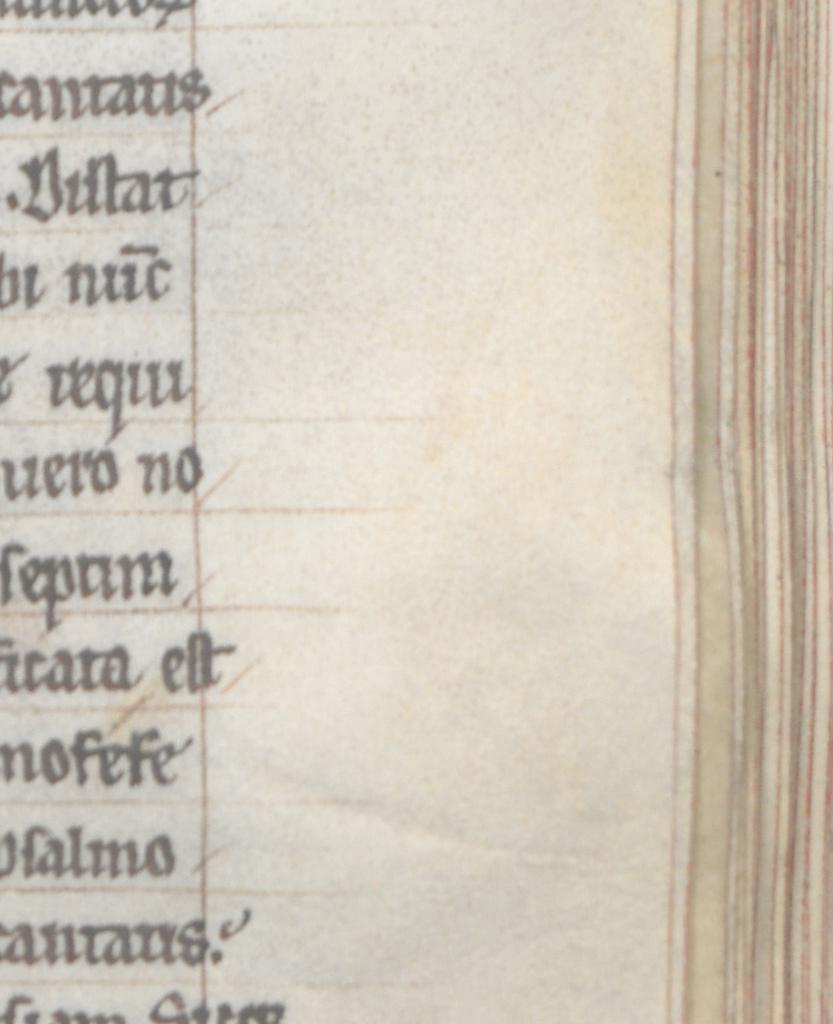 cantatis
.Distat
bi nūc
requi
uero no
septim
ficata est
psalmo
cantatis.